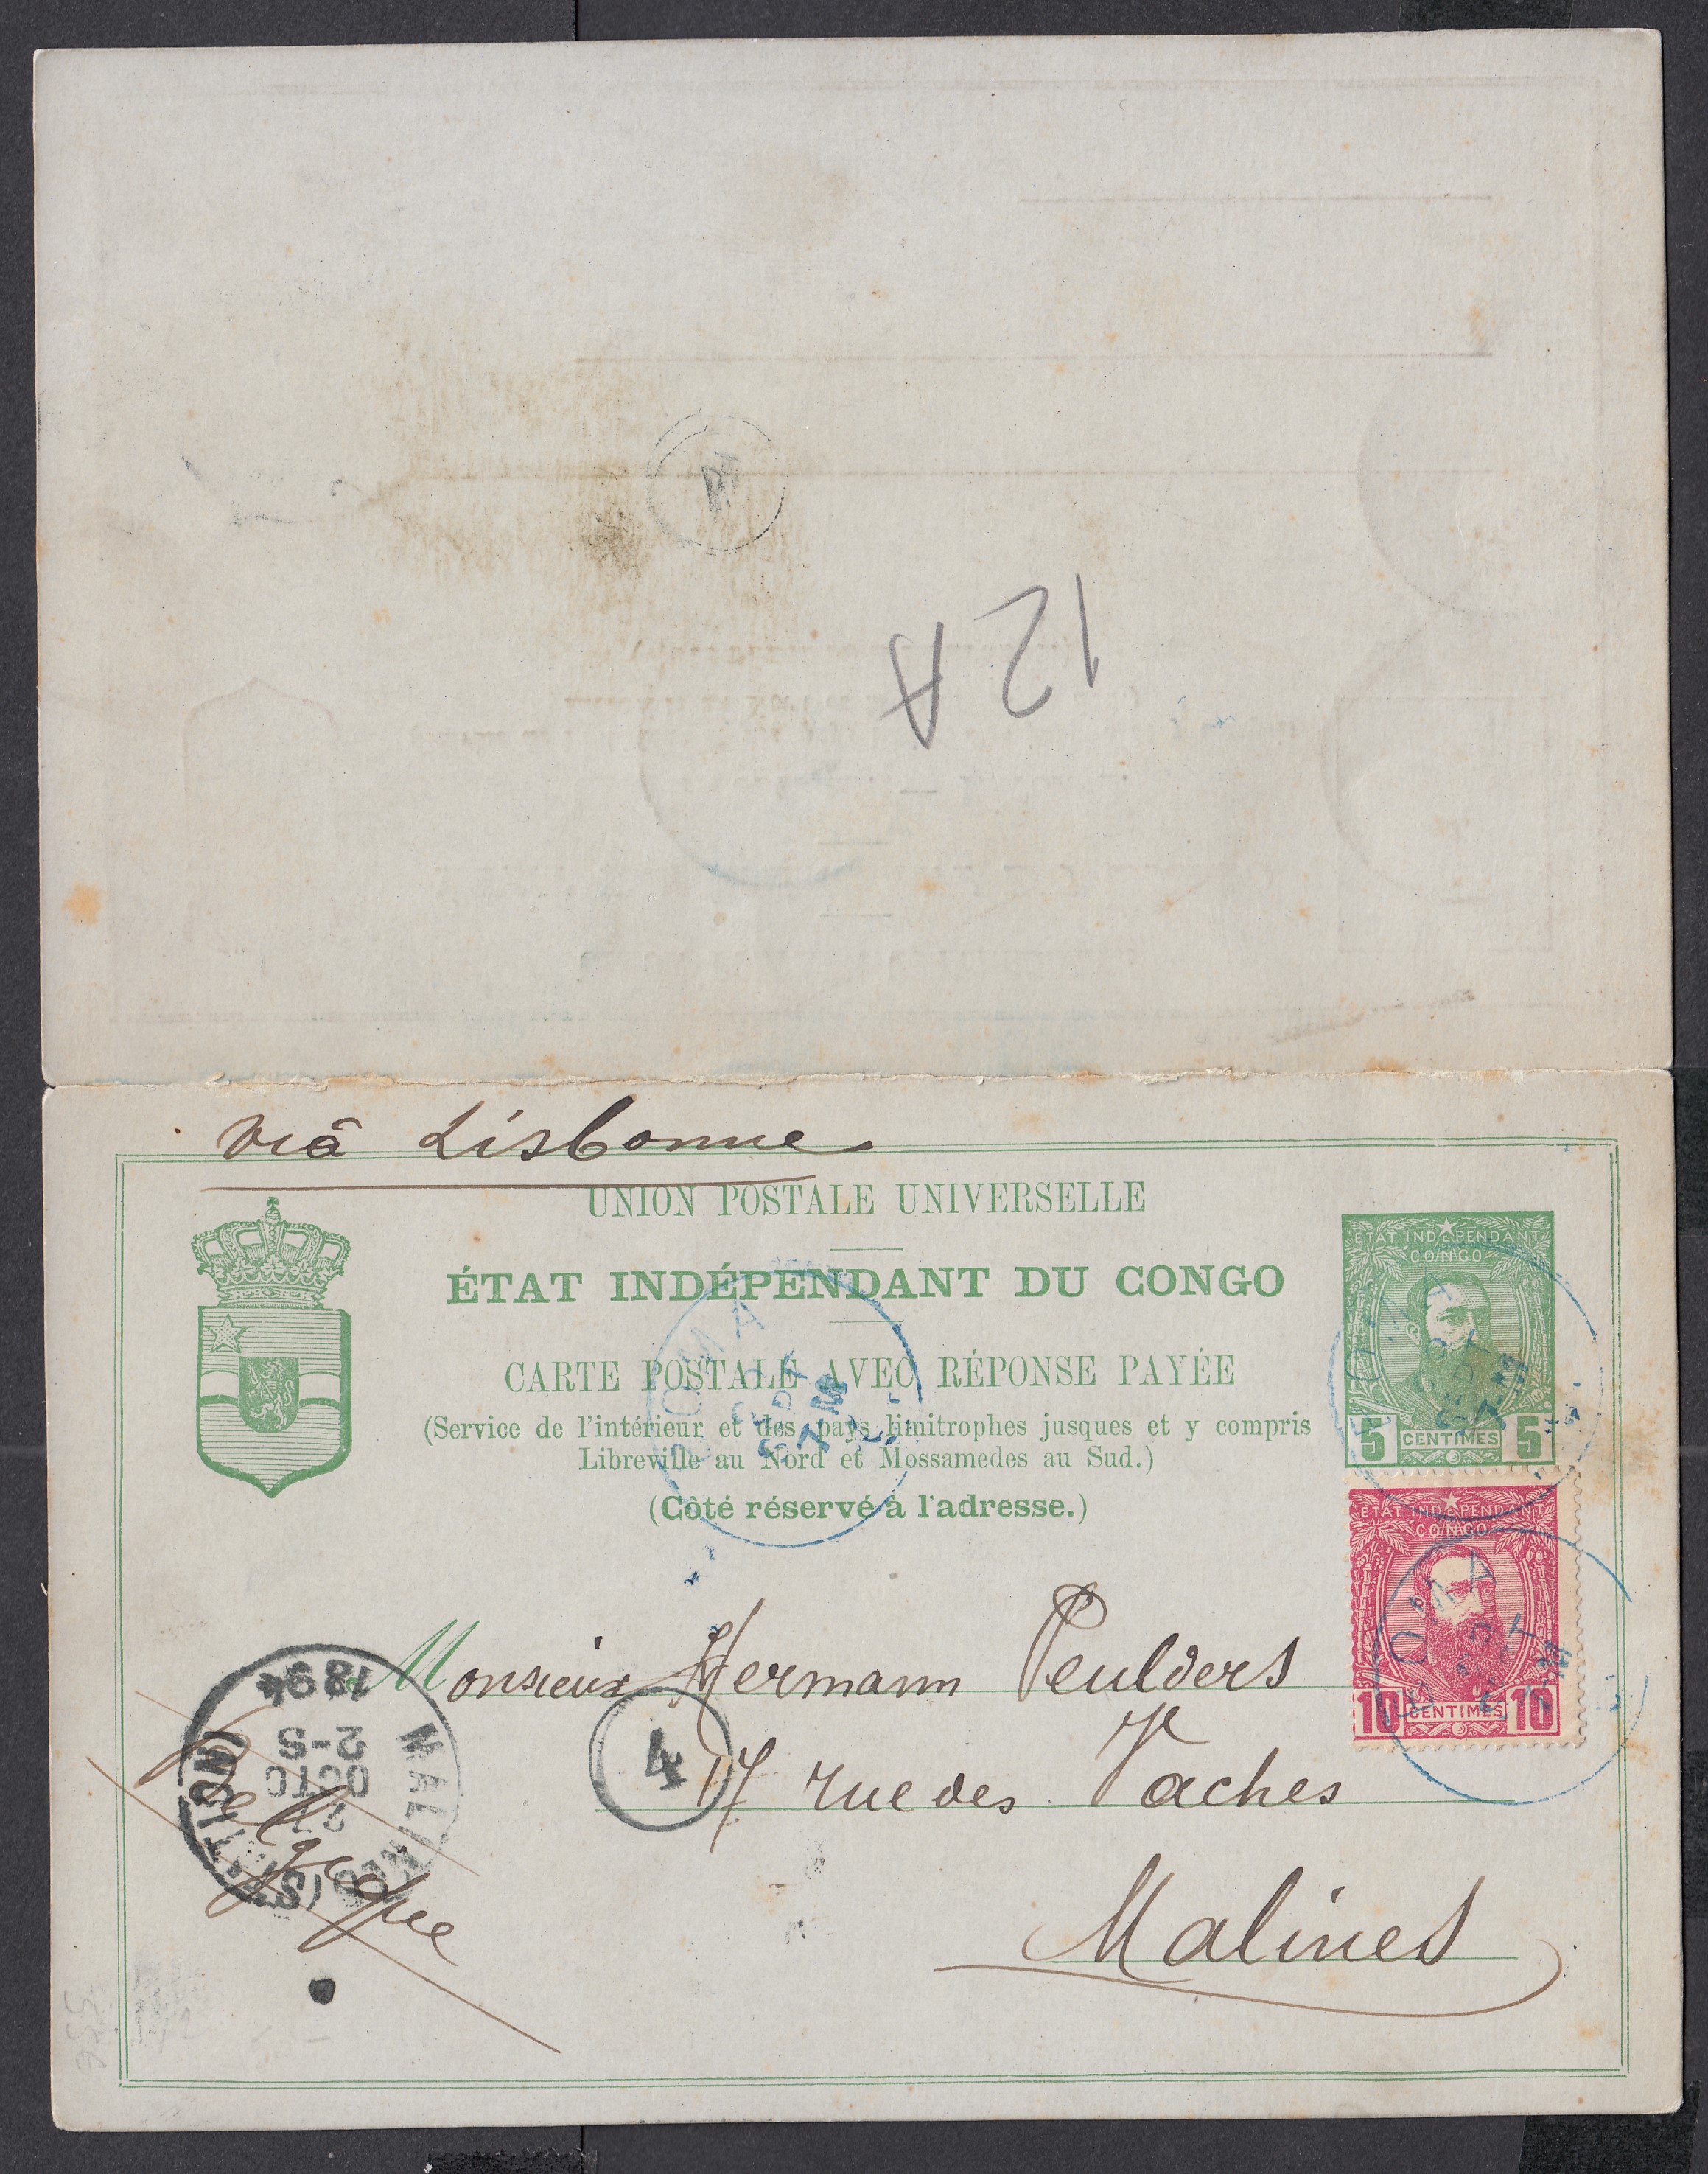 12 A
viâ Lisbonne
UNION POSTALE UNIVERSELLE
ÉTAT INDÉPENDANT DU CONGO
CARTE POSTALE AVEC RÉPONSE PAYÉE
(Service de l'intérieur et des pays limitrophes jusques et y compris
Libreville au Nord et Mossamedes au Sud.)
(Côté réservé à l'adresse.)
ÉTAT INDÉPENDANT
CONGO
5 CENTIMES 5
BOMA
SEPT
7 M
ÉTAT INDÉPENDANT
CONGO
10 CENTIMES 10
BOMA
SEPT
7 M
BOMA
SEPT
7 M
Monsieur Hermann Peulders
17 rue des Vaches
Malines
Belgique
4
MALINES (STATION)
27
OCTO
2-S
1894